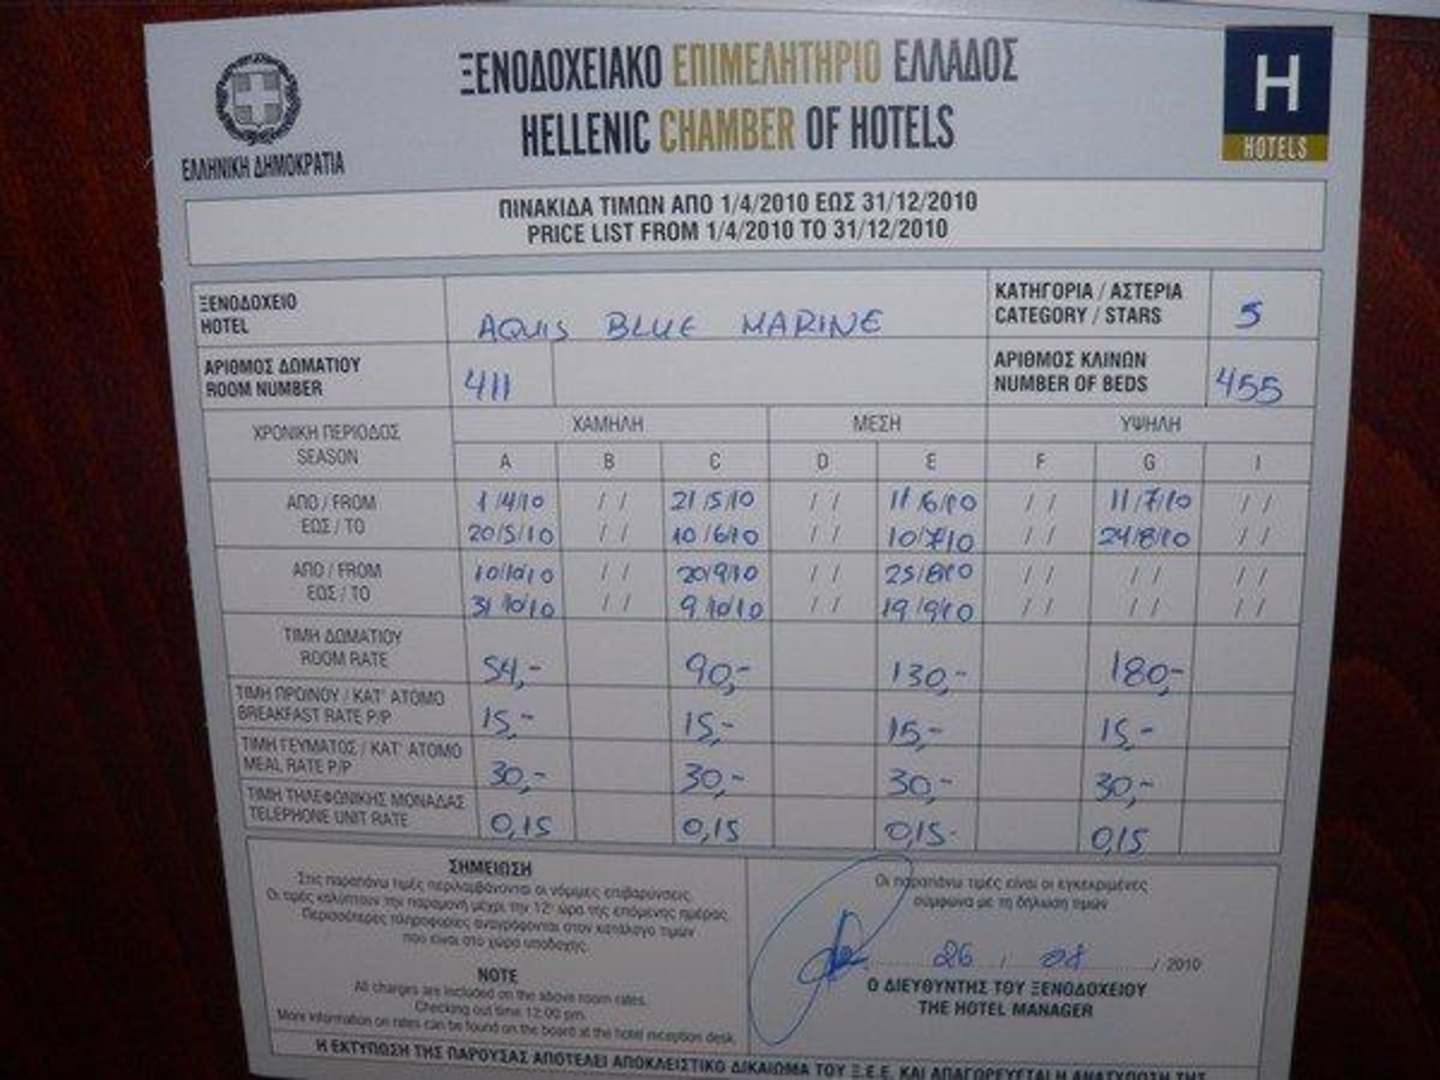 ΞΕΝΟΔΟΧΕΙΑΚΟ ΕΠΙΜΕΛΗΤΗΡΙΟ ΕΛΛΑΔΟΣ
HELLENIC CHAMBER OF HOTELS
ΕΛΛΗΝΙΚΗ ΔΗΜΟΚΡΑΤΙΑ
H
HOTELS
ΠΙΝΑΚΙΔΑ ΤΙΜΩΝ ΑΠΟ 1/4/2010 ΕΩΣ 31/12/2010
PRICE LIST FROM 1/4/2010 TO 31/12/2010
ΞΕΝΟΔΟΧΕΙΟ
HOTEL
AQUIS BLUE MARINE
ΚΑΤΗΓΟΡΙΑ / ΑΣΤΕΡΙΑ
CATEGORY / STARS
5
ΑΡΙΘΜΟΣ ΔΩΜΑΤΙΟΥ
ROOM NUMBER
411
ΑΡΙΘΜΟΣ ΚΛΙΝΩΝ
NUMBER OF BEDS
455
ΧΡΟΝΙΚΗ ΠΕΡΙΟΔΟΣ
SEASON
ΧΑΜΗΛΗ ΜΕΣΗ ΥΨΗΛΗ
A B C D E F G I
ΑΠΟ / FROM 1/4/10 / / 21/5/10 / / 11/6/10 / / 11/7/10 / /
ΕΩΣ / TO 20/5/10 / / 10/6/10 / / 10/7/10 / / 24/8/10 / /
ΑΠΟ / FROM 10/10/10 / / 20/9/10 / / 25/8/10 / / / / / /
ΕΩΣ / TO 31/10/10 / / 9/10/10 / / 19/9/10 / / / / / /
ΤΙΜΗ ΔΩΜΑΤΙΟΥ
ROOM RATE
54,- 90,- 130,- 180,-
ΤΙΜΗ ΠΡΟΙΝΟΥ / ΚΑΤ' ΑΤΟΜΟ
BREAKFAST RATE P/P
15,- 15,- 15,- 15,-
ΤΙΜΗ ΓΕΥΜΑΤΟΣ / ΚΑΤ' ΑΤΟΜΟ
MEAL RATE P/P
30,- 30,- 30,- 30,-
ΤΙΜΗ ΤΗΛΕΦΩΝΙΚΗΣ ΜΟΝΑΔΑΣ
TELEPHONE UNIT RATE
0,15 0,15 0,15 0,15
ΣΗΜΕΙΩΣΗ
Στις παραπάνω τιμές περιλαμβάνονται οι νόμιμες επιβαρύνσεις.
Οι τιμές καλύπτουν την παραμονή μέχρι την 12η ώρα της επόμενης ημέρας.
Περισσότερες πληροφορίες αναγράφονται στον κατάλογο τιμών
που είναι στο χώρο υποδοχής.
NOTE
All charges are included on the above room rates.
Checking out time 12:00 pm.
More information on rates can be found on the board at the hotel reception desk.
Οι παραπάνω τιμές είναι οι εγκεκριμένες
σύμφωνα με τη δήλωση τιμών
26 / 08 / 2010
Ο ΔΙΕΥΘΥΝΤΗΣ ΤΟΥ ΞΕΝΟΔΟΧΕΙΟΥ
THE HOTEL MANAGER
Η ΕΚΤΥΠΩΣΗ ΤΗΣ ΠΑΡΟΥΣΑΣ ΑΠΟΤΕΛΕΙ ΑΠΟΚΛΕΙΣΤΙΚΟ ΔΙΚΑΙΩΜΑ ΤΟΥ Ξ.Ε.Ε. ΚΑΙ ΑΠΑΓΟΡΕΥΕΤΑΙ Η ΑΝΑΤΥΠΩΣΗ ΤΗΣ